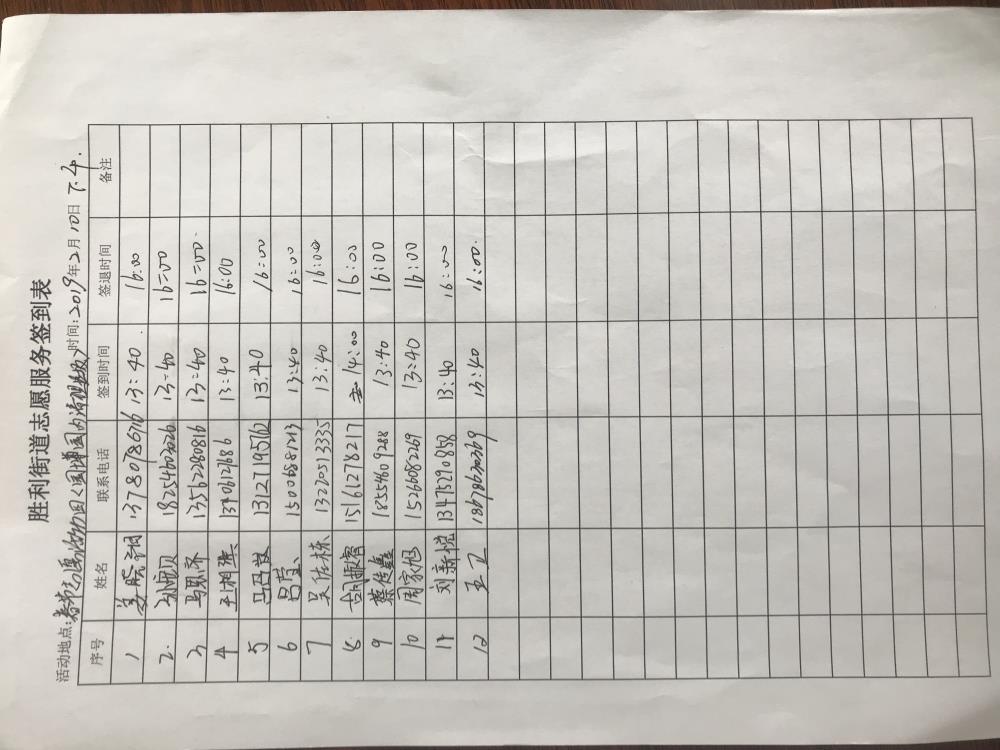 胜利街道志愿服务签到表
活动地点: 时间: 2019年2月10日 下午.
序号 姓名 联系电话 签到时间 签退时间 备注
1 13780786716 13:40. 16:00
2. 18254603026 13:40 16:00
3 马思齐 13562280816 13:40 16:00.
4 13:40 16:00
5 13127195762 13:40 16:00
6 吕莹 13:40 16:00
7 吴依栋 13220513335 13:40 16:00
8. 胡振睿 15161278217 14:00 16:00
9 蔡传鑫 18554609288 13:40 16:00
10 周家旭 15266082269 13:40 16:00
11 刘新悦 13475290858 13:40 16:00
12 王卫 18678630369 13:40 16:00.